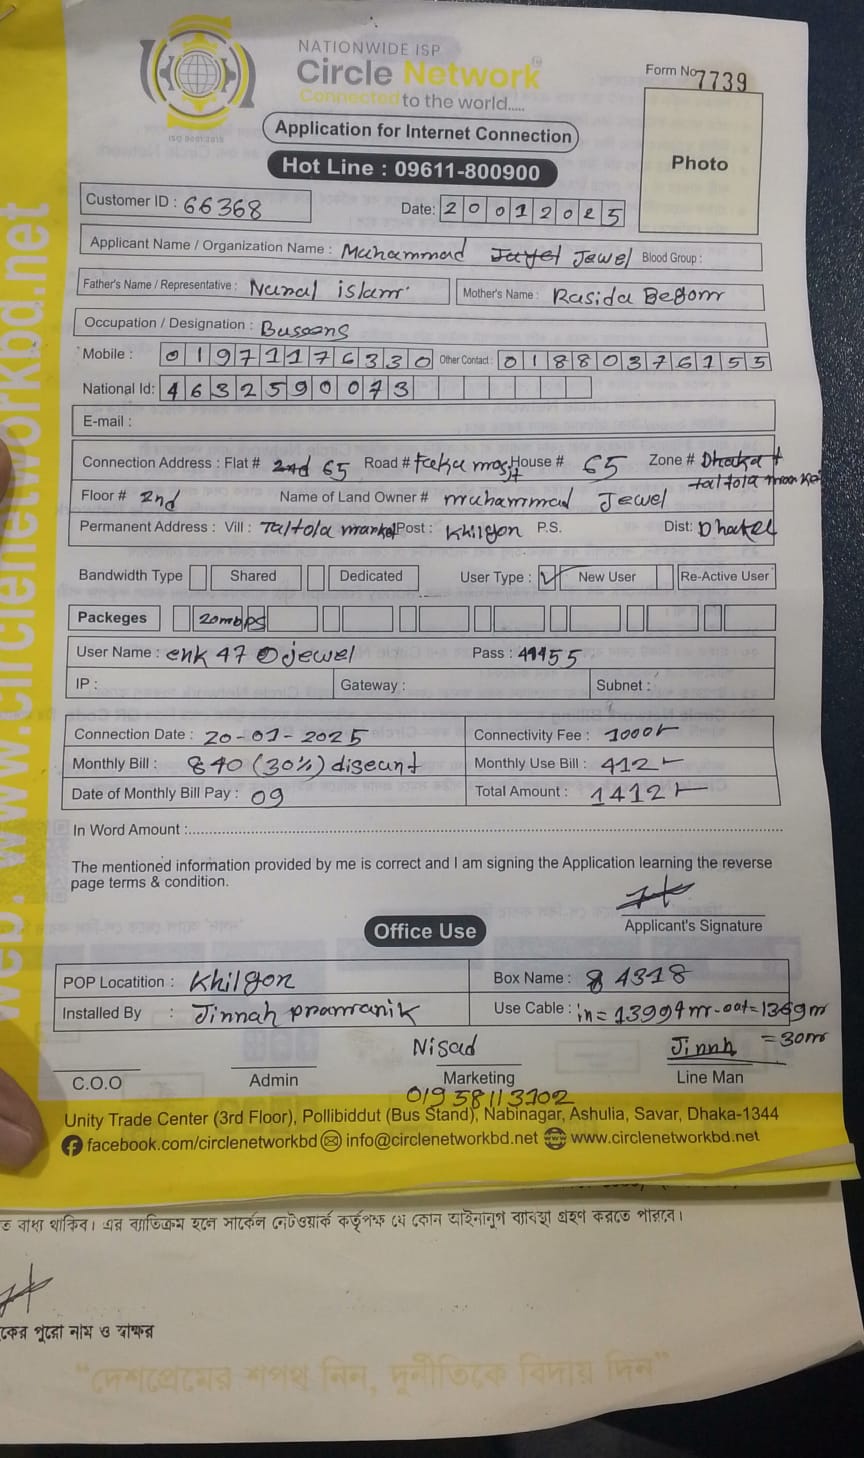 NATIONWIDE ISP
Circle Network
Connected to the world.....
ISO 9001:2015
Form No 7739
Application for Internet Connection
Hot Line : 09611-800900
Photo
Customer ID : 66368
Date: 20012025
Applicant Name / Organization Name : Muhammad Jewel Blood Group :
Father's Name / Representative : Nural islam Mother's Name : Rasida Begom
Occupation / Designation : Busoons
Mobile : 01971176330 Other Contact : 01880376155
National Id: 4632590073
E-mail :
Connection Address : Flat # 2nd 65 Road # House # 65 Zone # Dhaka
taltola
Floor # 2nd Name of Land Owner # muhammad Jewel
Permanent Address : Vill : Taltola market Post : Khilgon P.S. Dist: Dhaka
Bandwidth Type Shared Dedicated User Type : New User Re-Active User
Packeges 20mbps
User Name : enk 47 @jewel Pass :
IP : Gateway : Subnet :
Connection Date : 20-01-2025 Connectivity Fee : 1000
Monthly Bill : 840 (30%) diseunt Monthly Use Bill : 412
Date of Monthly Bill Pay : 09 Total Amount : 1412
In Word Amount :
The mentioned information provided by me is correct and I am signing the Application learning the reverse
page terms & condition.
Applicant's Signature
Office Use
POP Locatition : Khilgon Box Name : 4318
Installed By : Jinnah pramanik Use Cable : in= out=
=30m
Nisad Jinnh
C.O.O Admin Marketing Line Man
01958113102
Unity Trade Center (3rd Floor), Pollibiddut (Bus Stand), Nabinagar, Ashulia, Savar, Dhaka-1344
facebook.com/circlenetworkbd info@circlenetworkbd.net www.circlenetworkbd.net
web: www.circlenetworkbd.net
বাধ্য থাকিব। এর ব্যতিক্রম হলে সার্কেল নেটওয়ার্ক কর্তৃপক্ষ যে কোন আইনানুগ ব্যবস্থা গ্রহণ করতে পারবে।
পুরো নাম ও স্বাক্ষর
"দেশপ্রেমের শপথ নিন, দুর্নীতিকে বিদায় দিন"